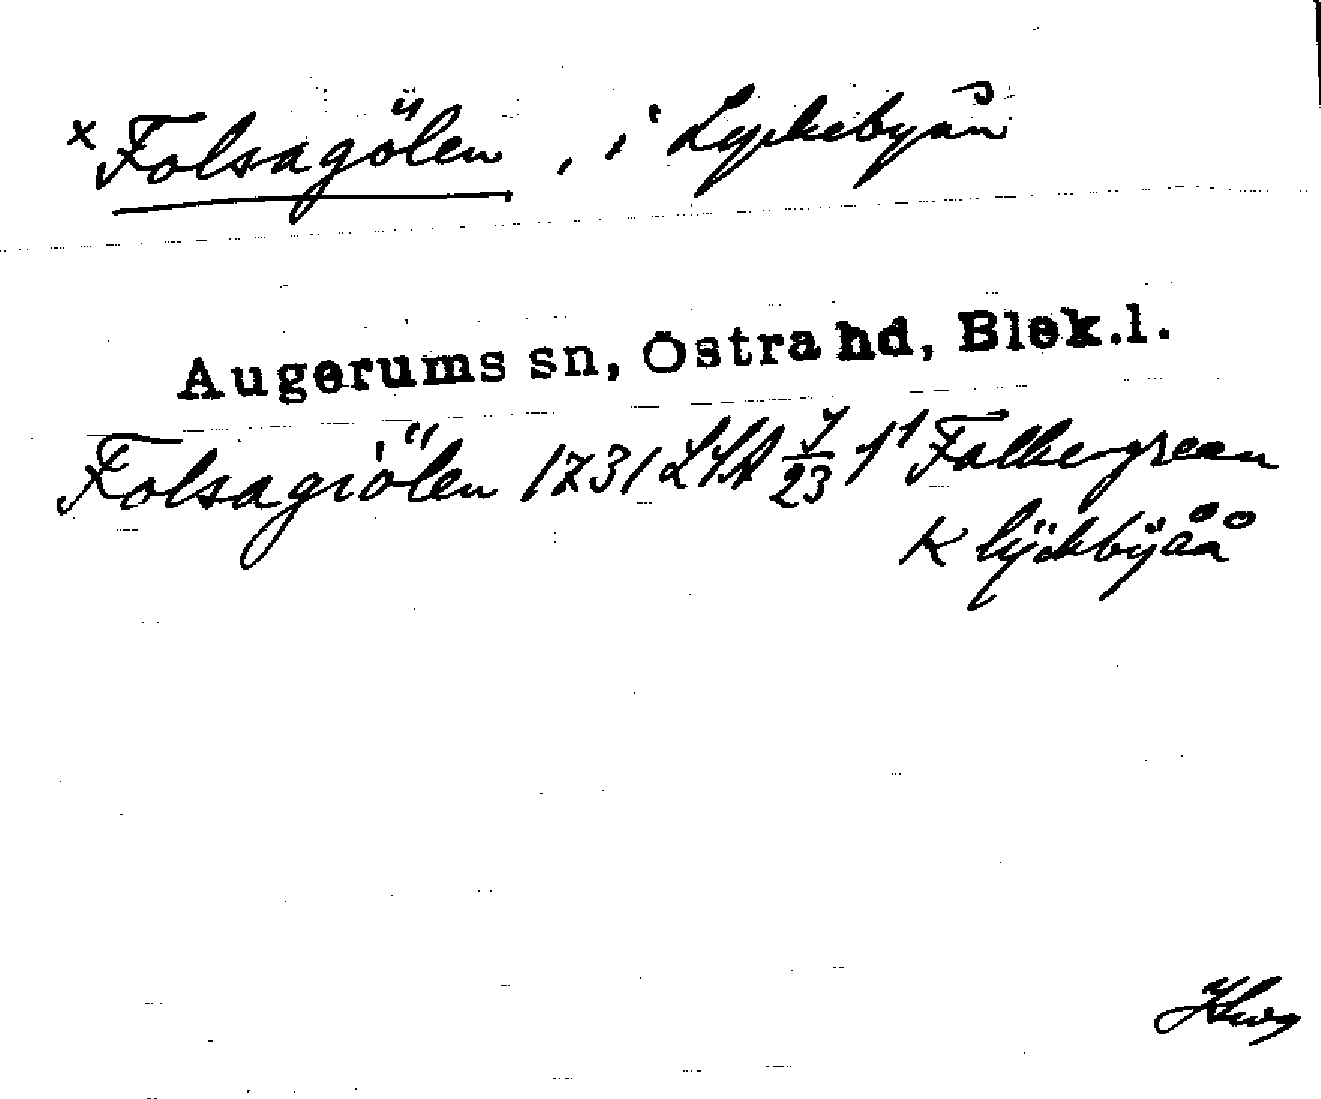 x Folsagölen, i Lyckebyån
Augerums sn, Östra hd, Blek.l.
Folsagiölen 1731 LSA 7/23 1¹ Falkengreen
K lÿckbÿåå